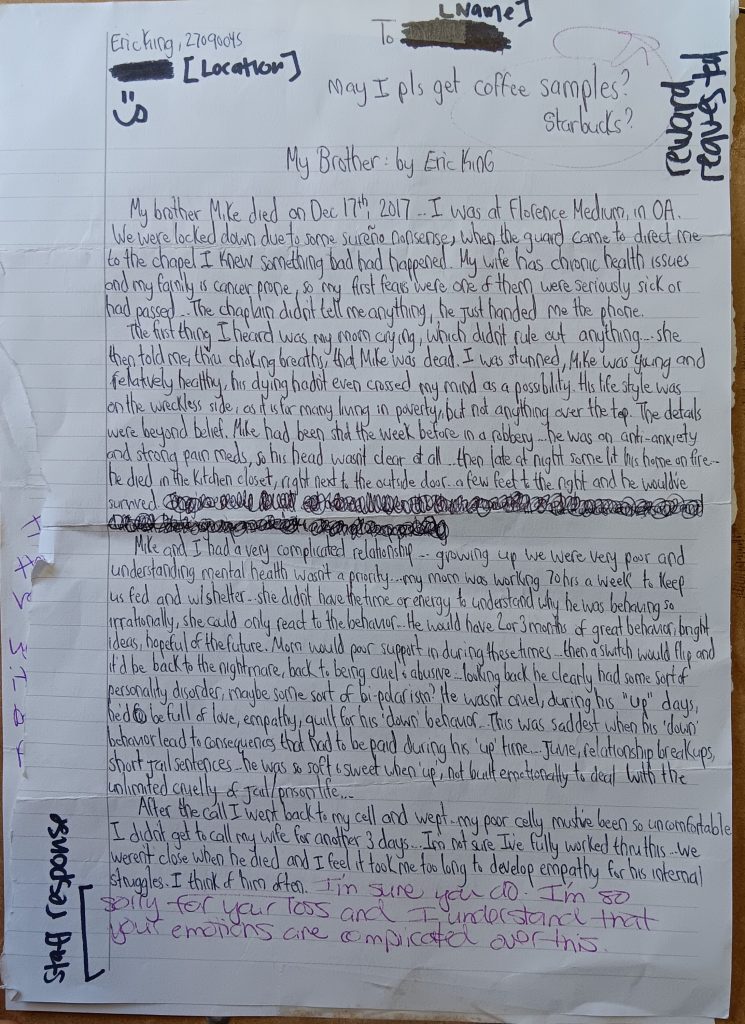 [Name]
Eric King, 27090045
To
[Location]
May I pls get coffee samples?
Starbucks?
reward
request
My Brother: by Eric King
My brother Mike died on Dec 17th, 2017... I was at Florence Medium, in OA.
We were locked down due to some sureño nonsense, when the guard came to direct me
to the chapel I knew something bad had happened. My wife has chronic health issues
and my family is cancer prone, so my first fears were one of them were seriously sick or
had passed... The chaplain didn't tell me anything, he just handed me the phone.
The first thing I heard was my mom crying, which didn't rule out anything.... she
then told me, thru choking breaths, that Mike was dead. I was stunned, Mike was young and
relatively healthy, his dying hadn't even crossed my mind as a possibility. His life style was
on the wreckless side, as it is for many living in poverty, but not anything over the top. The details
were beyond belief. Mike had been shot the week before in a robbery... he was on anti-anxiety
and strong pain meds, so his head wasn't clear at all... then late at night some lit his home on fire...
he died in the kitchen closet, right next to the outside door.. a few feet to the right and he would've
survived.
Mike and I had a very complicated relationship... growing up we were very poor and
understanding mental health wasn't a priority... my mom was working 70 hrs a week to keep
us fed and w/shelter... she didn't have the time or energy to understand why he was behaving so
irrationally, she could only react to the behavior... He would have 2 or 3 months of great behavior, bright
ideas, hopeful of the future. Mom would pour support in during these times... then a switch would flip and
it'd be back to the nightmare, back to being cruel & abusive... looking back he clearly had some sort of
personality disorder, maybe some sort of bi-polarism? He wasn't cruel, during his "up" days,
he'd be full of love, empathy, guilt for his 'down' behavior. This was saddest when his 'down'
behavior lead to consequences that had to be paid during his 'up' time.... Juvie, relationship breakups,
short jail sentences... he was so soft & sweet when up, not built emotionally to deal with the
unlimited cruelly of jail/prison life...
After the call I went back to my cell and wept... my poor celly must've been so uncomfortable
I didn't get to call my wife for another 3 days... I'm not sure I've fully worked thru this... we
weren't close when he died and I feel it took me too long to develop empathy for his internal
struggles. I think of him often. I'm sure you do. I'm so
sorry for your loss and I understand that
your emotions are complicated over this.
Staff response